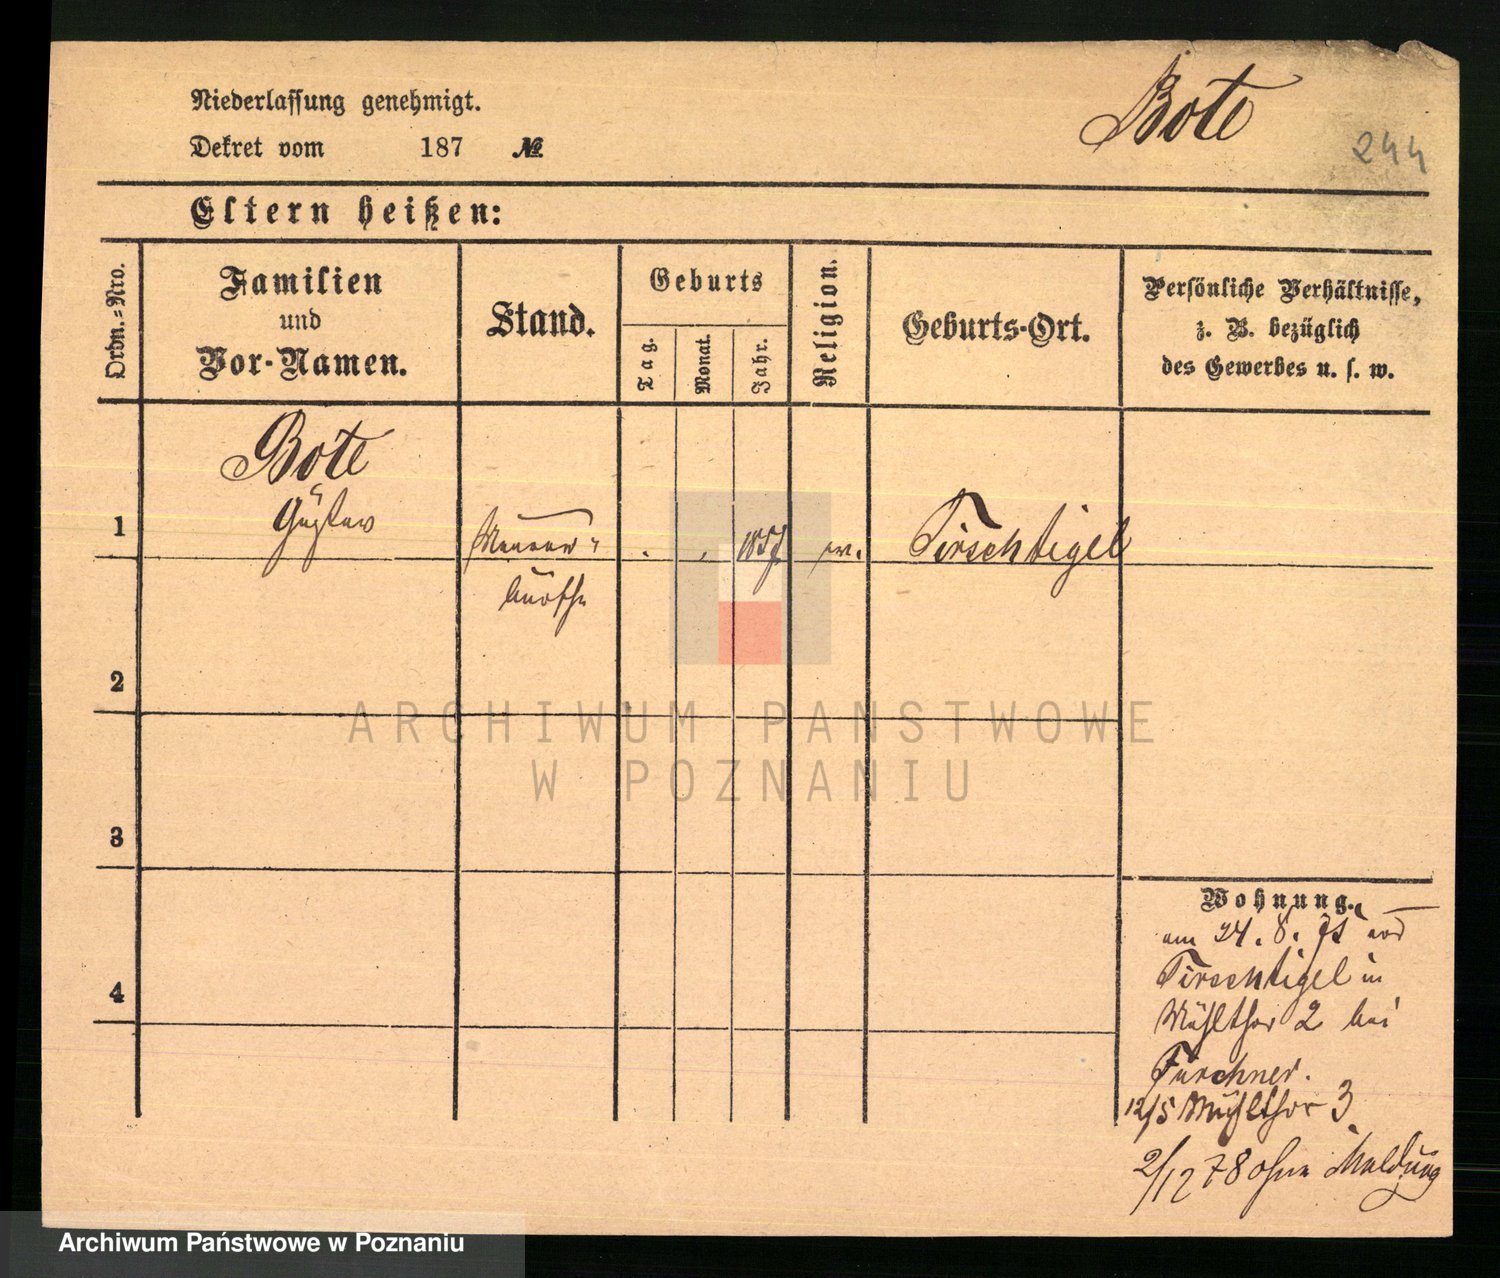 Niederlassung genehmigt.
Dekret vom 187 №
Bote
244
Eltern heißen:
Ordn.=Nro.
Familien
und
Vor-Namen.
Stand.
Geburts
Tag.
Monat.
Jahr.
Religion.
Geburts-Ort.
Persönliche Verhältnisse,
z. B. bezüglich
des Gewerbes u. s. w.
Bote
Gustav
1
Maurer-
1857
ev.
Tirschtigel
2
3
4
Wohnung.
am 24. 8. von
Tirschtigel in
Mühlthor 2 bei
Turchner.
12/5 Mühlthor 3
2/12 78 ohne Meldung
ARCHIWUM PAŃSTWOWE
W POZNANIU
Archiwum Państwowe w Poznaniu